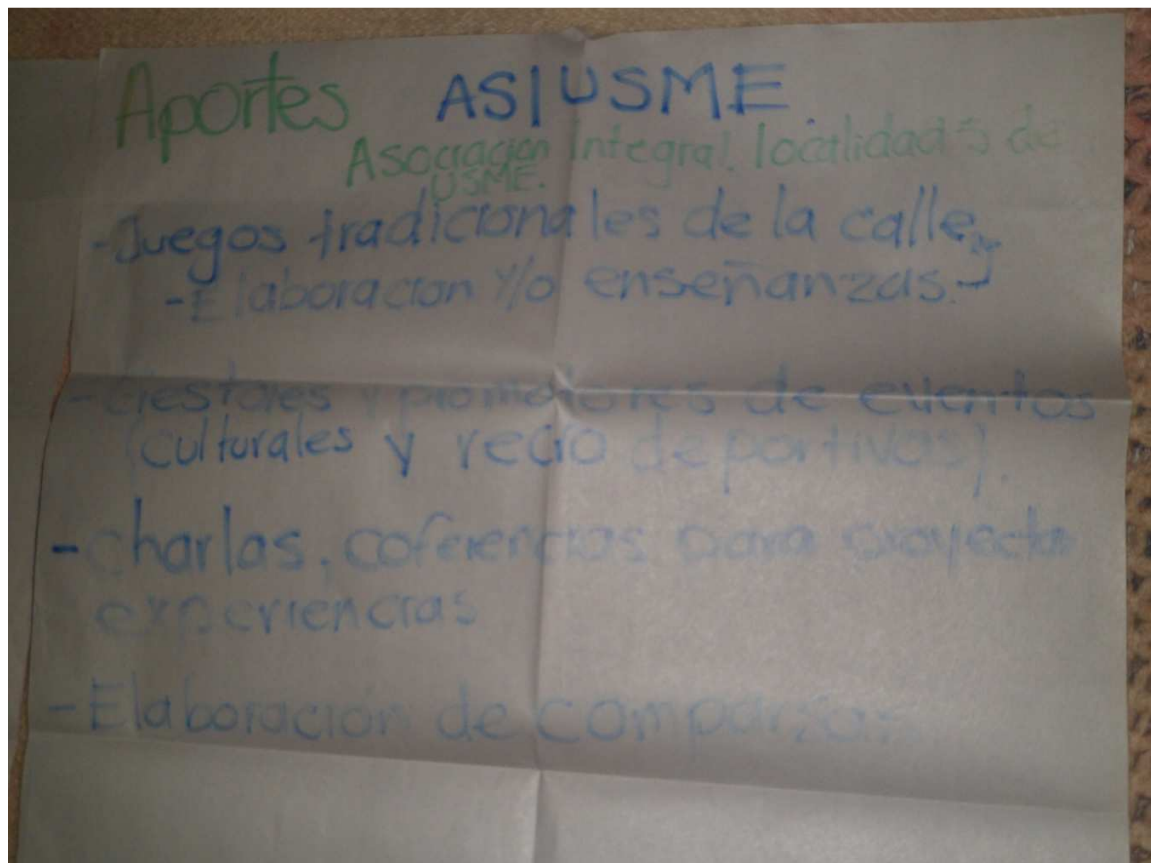 Aportes ASIUSME.
Asociacion Integral. localidad 5 de
USME.
-Juegos tradicionales de la calle,
-Elaboracion y/o enseñanzas.-
-Gestores y promotores de eventos
(culturales y recreo deportivos).
-charlas, coferencias para proyectar
experiencias
-Elaboración de comparsas